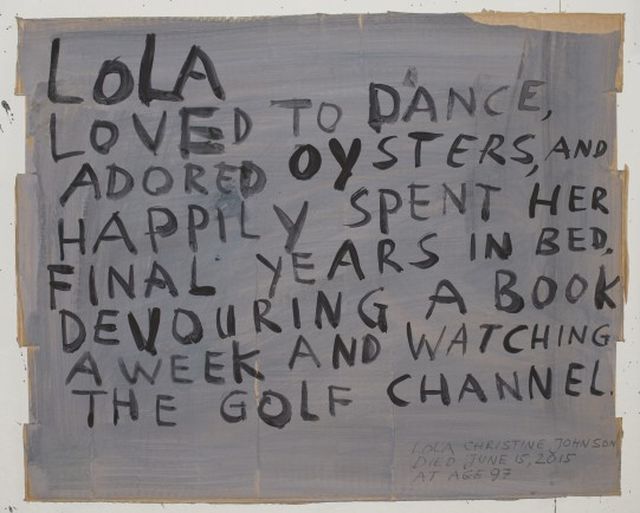 LOLA
LOVED TO DANCE,
ADORED OYSTERS, AND
HAPPILY SPENT HER
FINAL YEARS IN BED,
DEVOURING A BOOK
A WEEK AND WATCHING
THE GOLF CHANNEL.
LOLA CHRISTINE JOHNSON
DIED JUNE 15, 2015
AT AGE 97